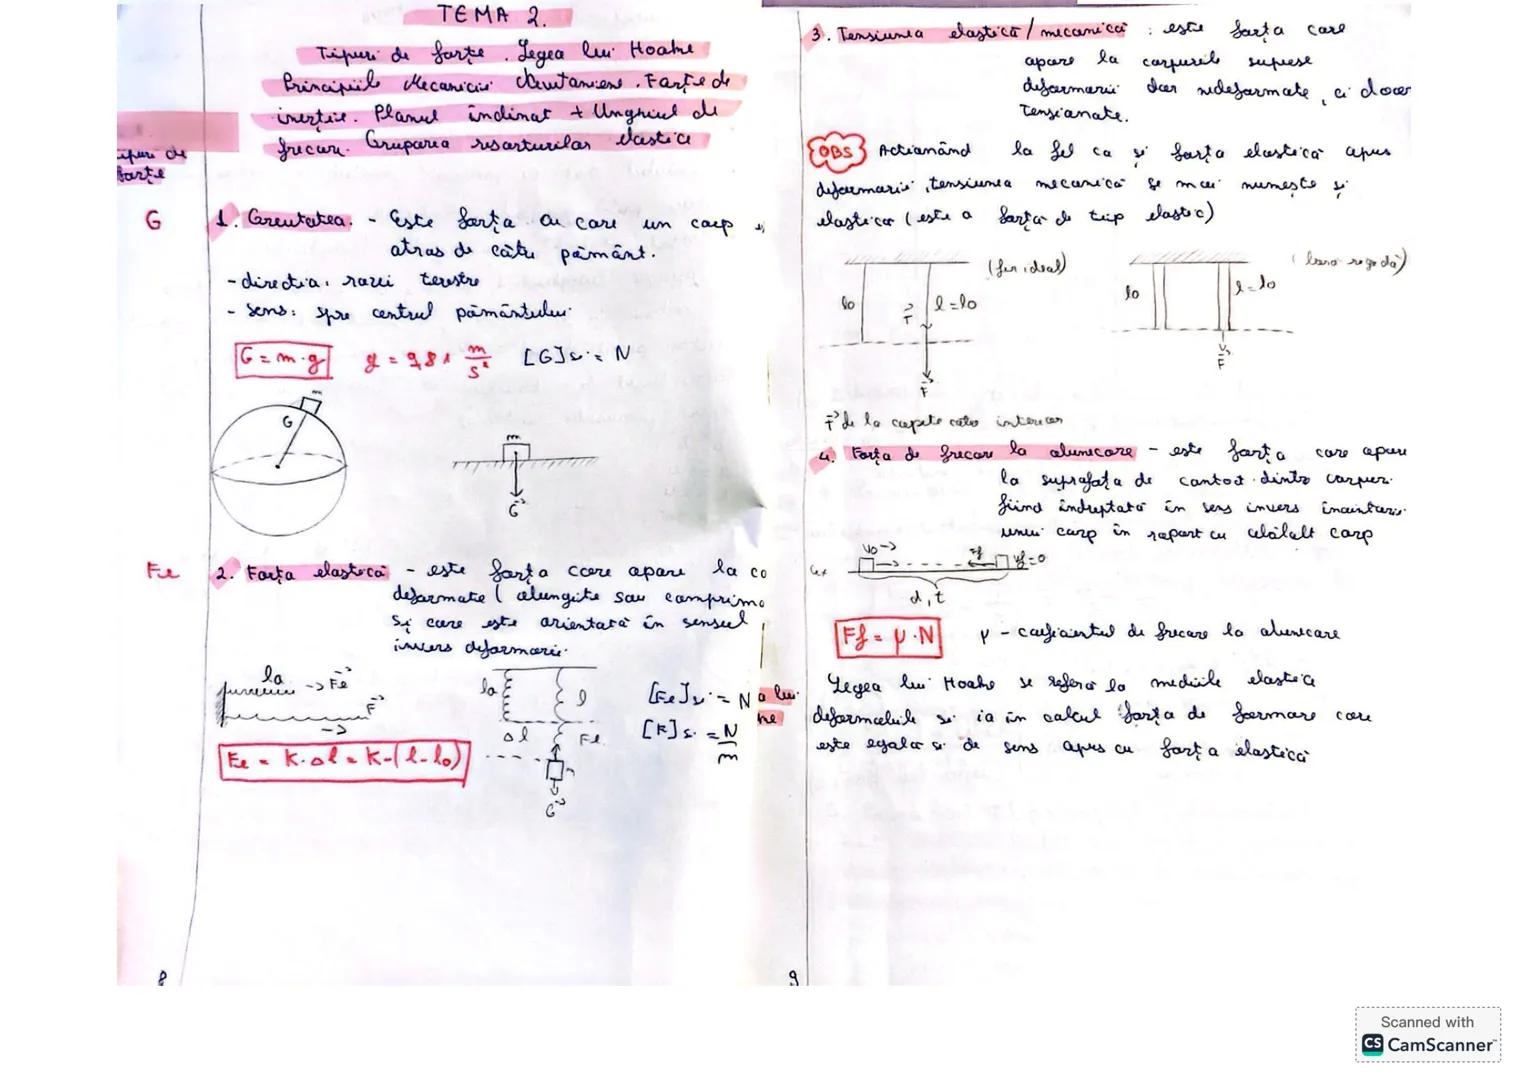 TEMA 2.
Tipuri de forțe. Legea lui Hooke
Principiile Mecanicii Newtoniene. Forțe de
inerție. Planul înclinat + Unghiul de
frecare. Gruparea resorturilor elastice
tipuri de
forțe
G
1. Greutatea. - Este forța cu care un corp e
atras de către pământ.
- direcția: razei terestre
- sens: spre centrul pământului.
G = m·g g = 9,81 m/s² [G]SI = N
m
G
m
G
Fe
2. Forța elastică - este forța care apare la co
deformate (alungite sau comprima
și care este orientată în sensul
invers deformarii.
lo → Fe
F
→
lo l
Δl Fe
G
[Fe]SI = N
[K]SI = N/m
Fe = K·Δl = K·(l-lo)
8
3. Tensiunea elastică/mecanică : este forța care
apare la corpurile supuse
deformarii dar nedeformate, ci doar
tensionate.
OBS Acționând la fel ca și forța elastică apus
deformarii, tensiunea mecanică se mai numește și
elastica (este o forță de tip elastic)
lo T l=lo (fir ideal)
F
lo l=lo (bara rigidă)
F
T de la capete catre interior
4. Forța de frecare la alunecare - este forța care apare
la suprafața de contact dintre corpuri
fiind îndreptată în sens invers înaintarii
unui corp în raport cu celălalt corp
ex v0 → Ff vf=0
d, t
Ff = μ·N μ - coeficientul de frecare la alunecare
a lui
Legea lui Hooke se refera la mediile elastice
deformabile si ia în calcul forța de formare care
este egala si de sens apus cu forța elastică
9
Scanned with
CS CamScanner